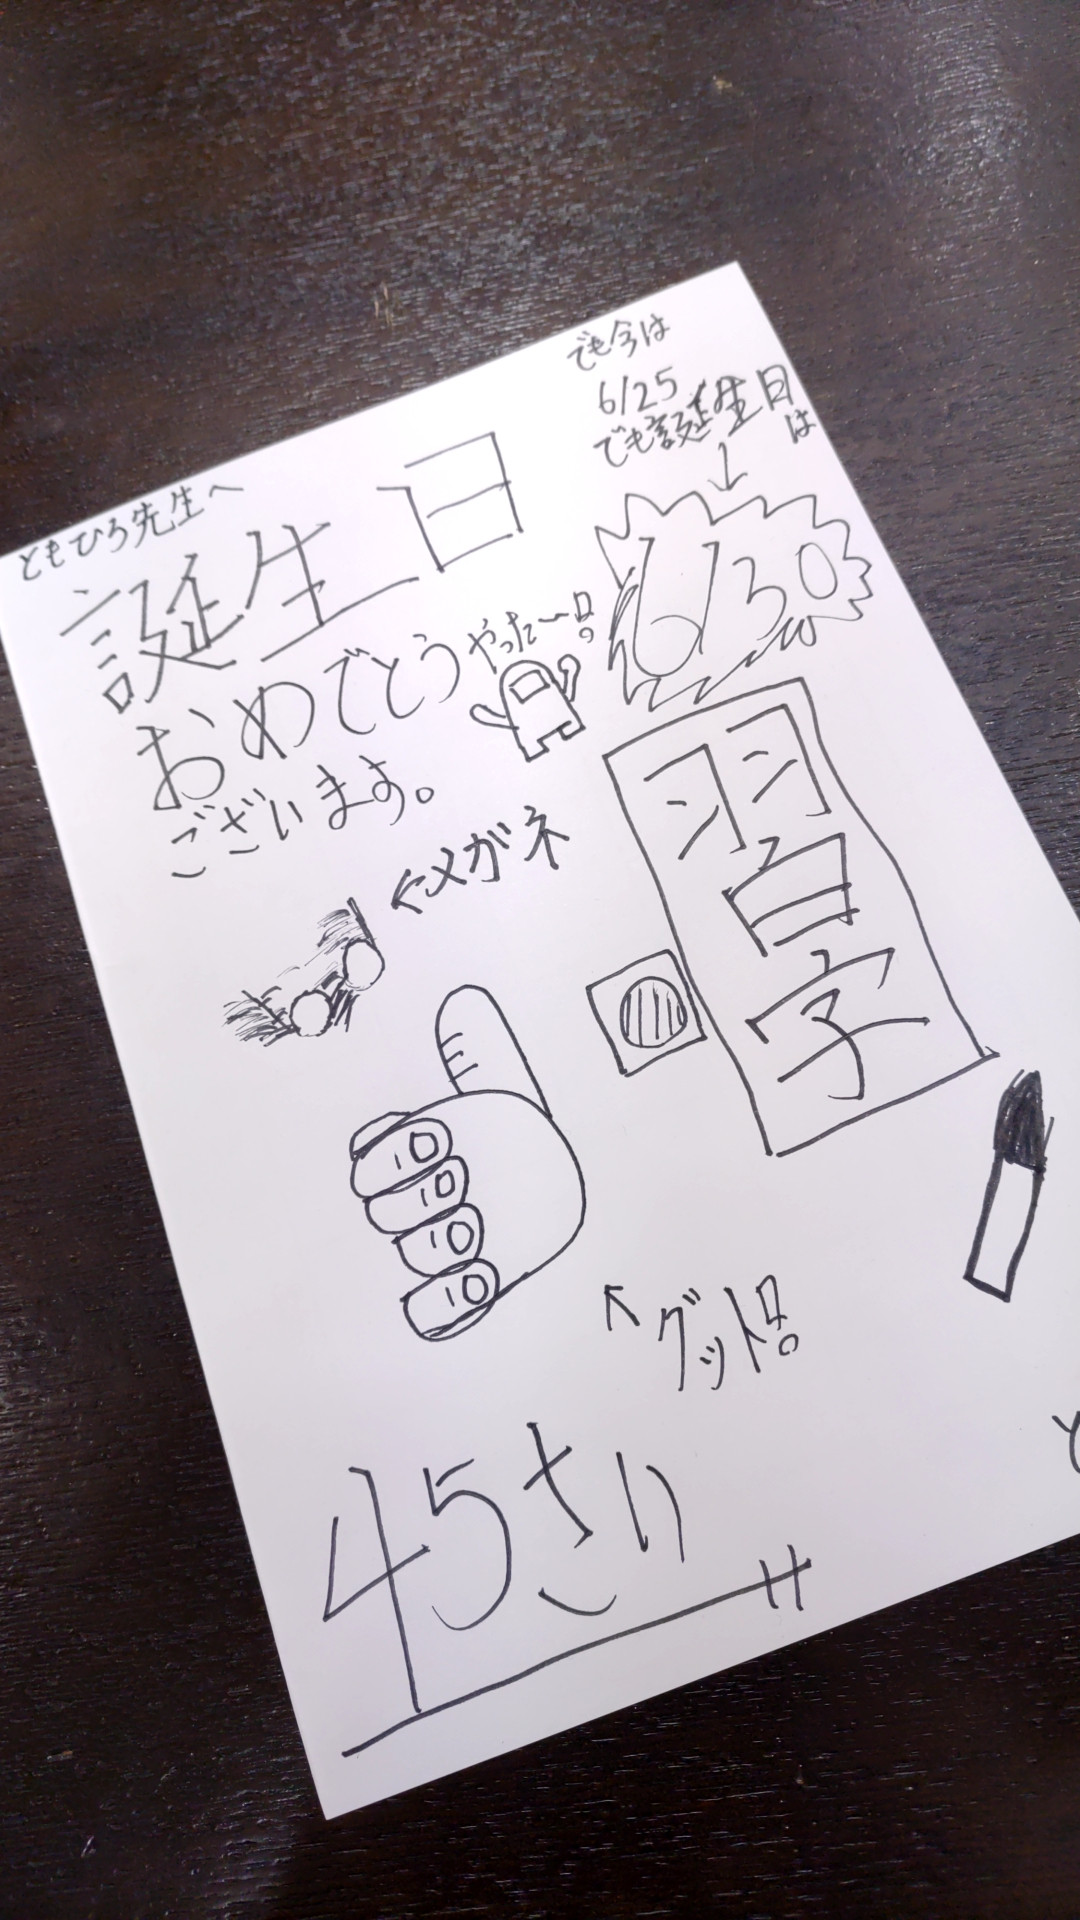 ともひろ先生へ
誕生日
おめでとう
ございます。
やったー!
でも今は
6/25
でも誕生日
は
6/30
習字
←メガネ
グット!
45さい